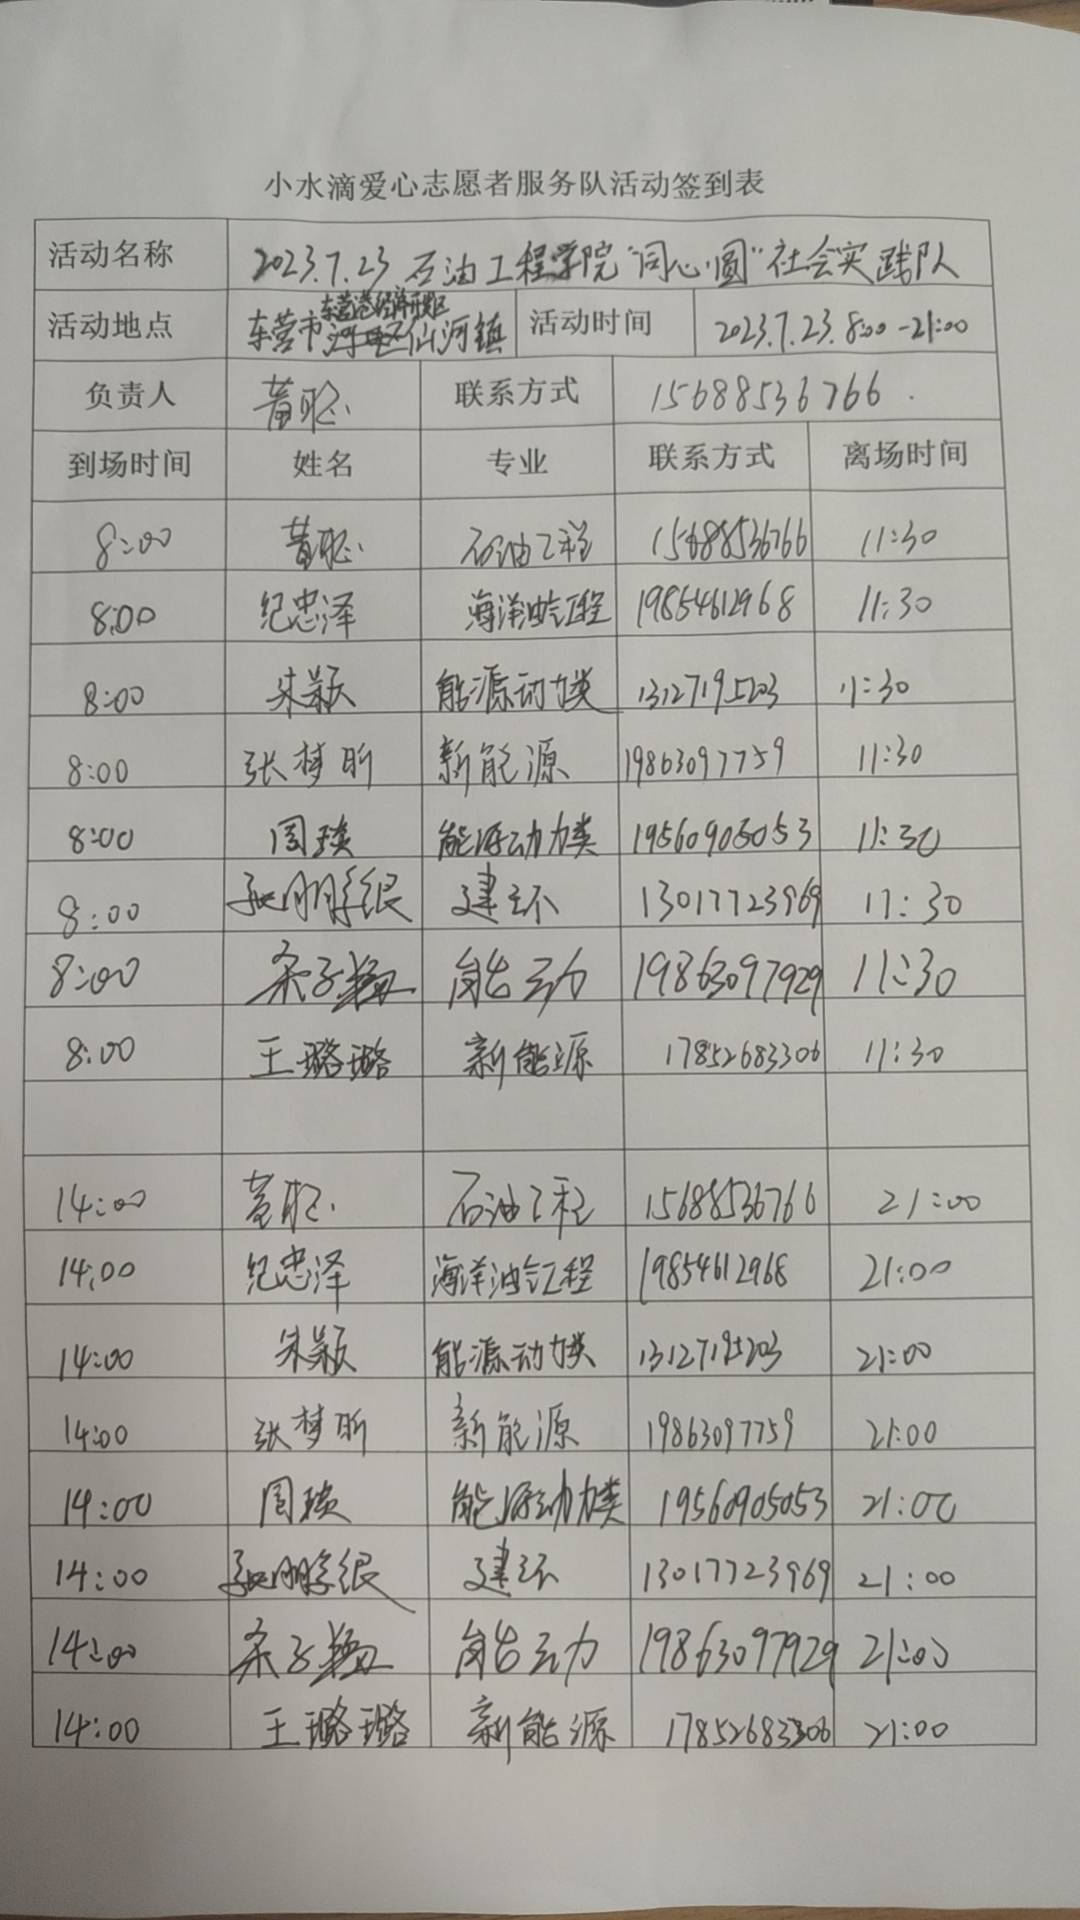 小水滴爱心志愿者服务队活动签到表
活动名称 2023.7.23 石油工程学院“同心圆”社会实践队
活动地点 东营市东营港经济开发区仙河镇 活动时间 2023.7.23. 8:00-21:00
负责人 黄聪 联系方式 15688536766
到场时间 姓名 专业 联系方式 离场时间
8:00 黄聪 石油工程 15688536766 11:30
8:00 纪忠泽 海洋油气工程 19854612968 11:30
8:00 朱颖 能源动力类 13127195203 11:30
8:00 张梦昕 新能源 19863097759 11:30
8:00 周瑛 能源动力类 19560905053 11:30
8:00 建环 13017723969 11:30
8:00 能动 19863097929 11:30
8:00 王璐璐 新能源 17852683306 11:30
14:00 黄聪 石油工程 15688536766 21:00
14:00 纪忠泽 海洋油气工程 19854612968 21:00
14:00 朱颖 能源动力类 13127195203 21:00
14:00 张梦昕 新能源 19863097759 21:00
14:00 周瑛 能源动力类 19560905053 21:00
14:00 建环 13017723969 21:00
14:00 能动 19863097929 21:00
14:00 王璐璐 新能源 17852683306 21:00